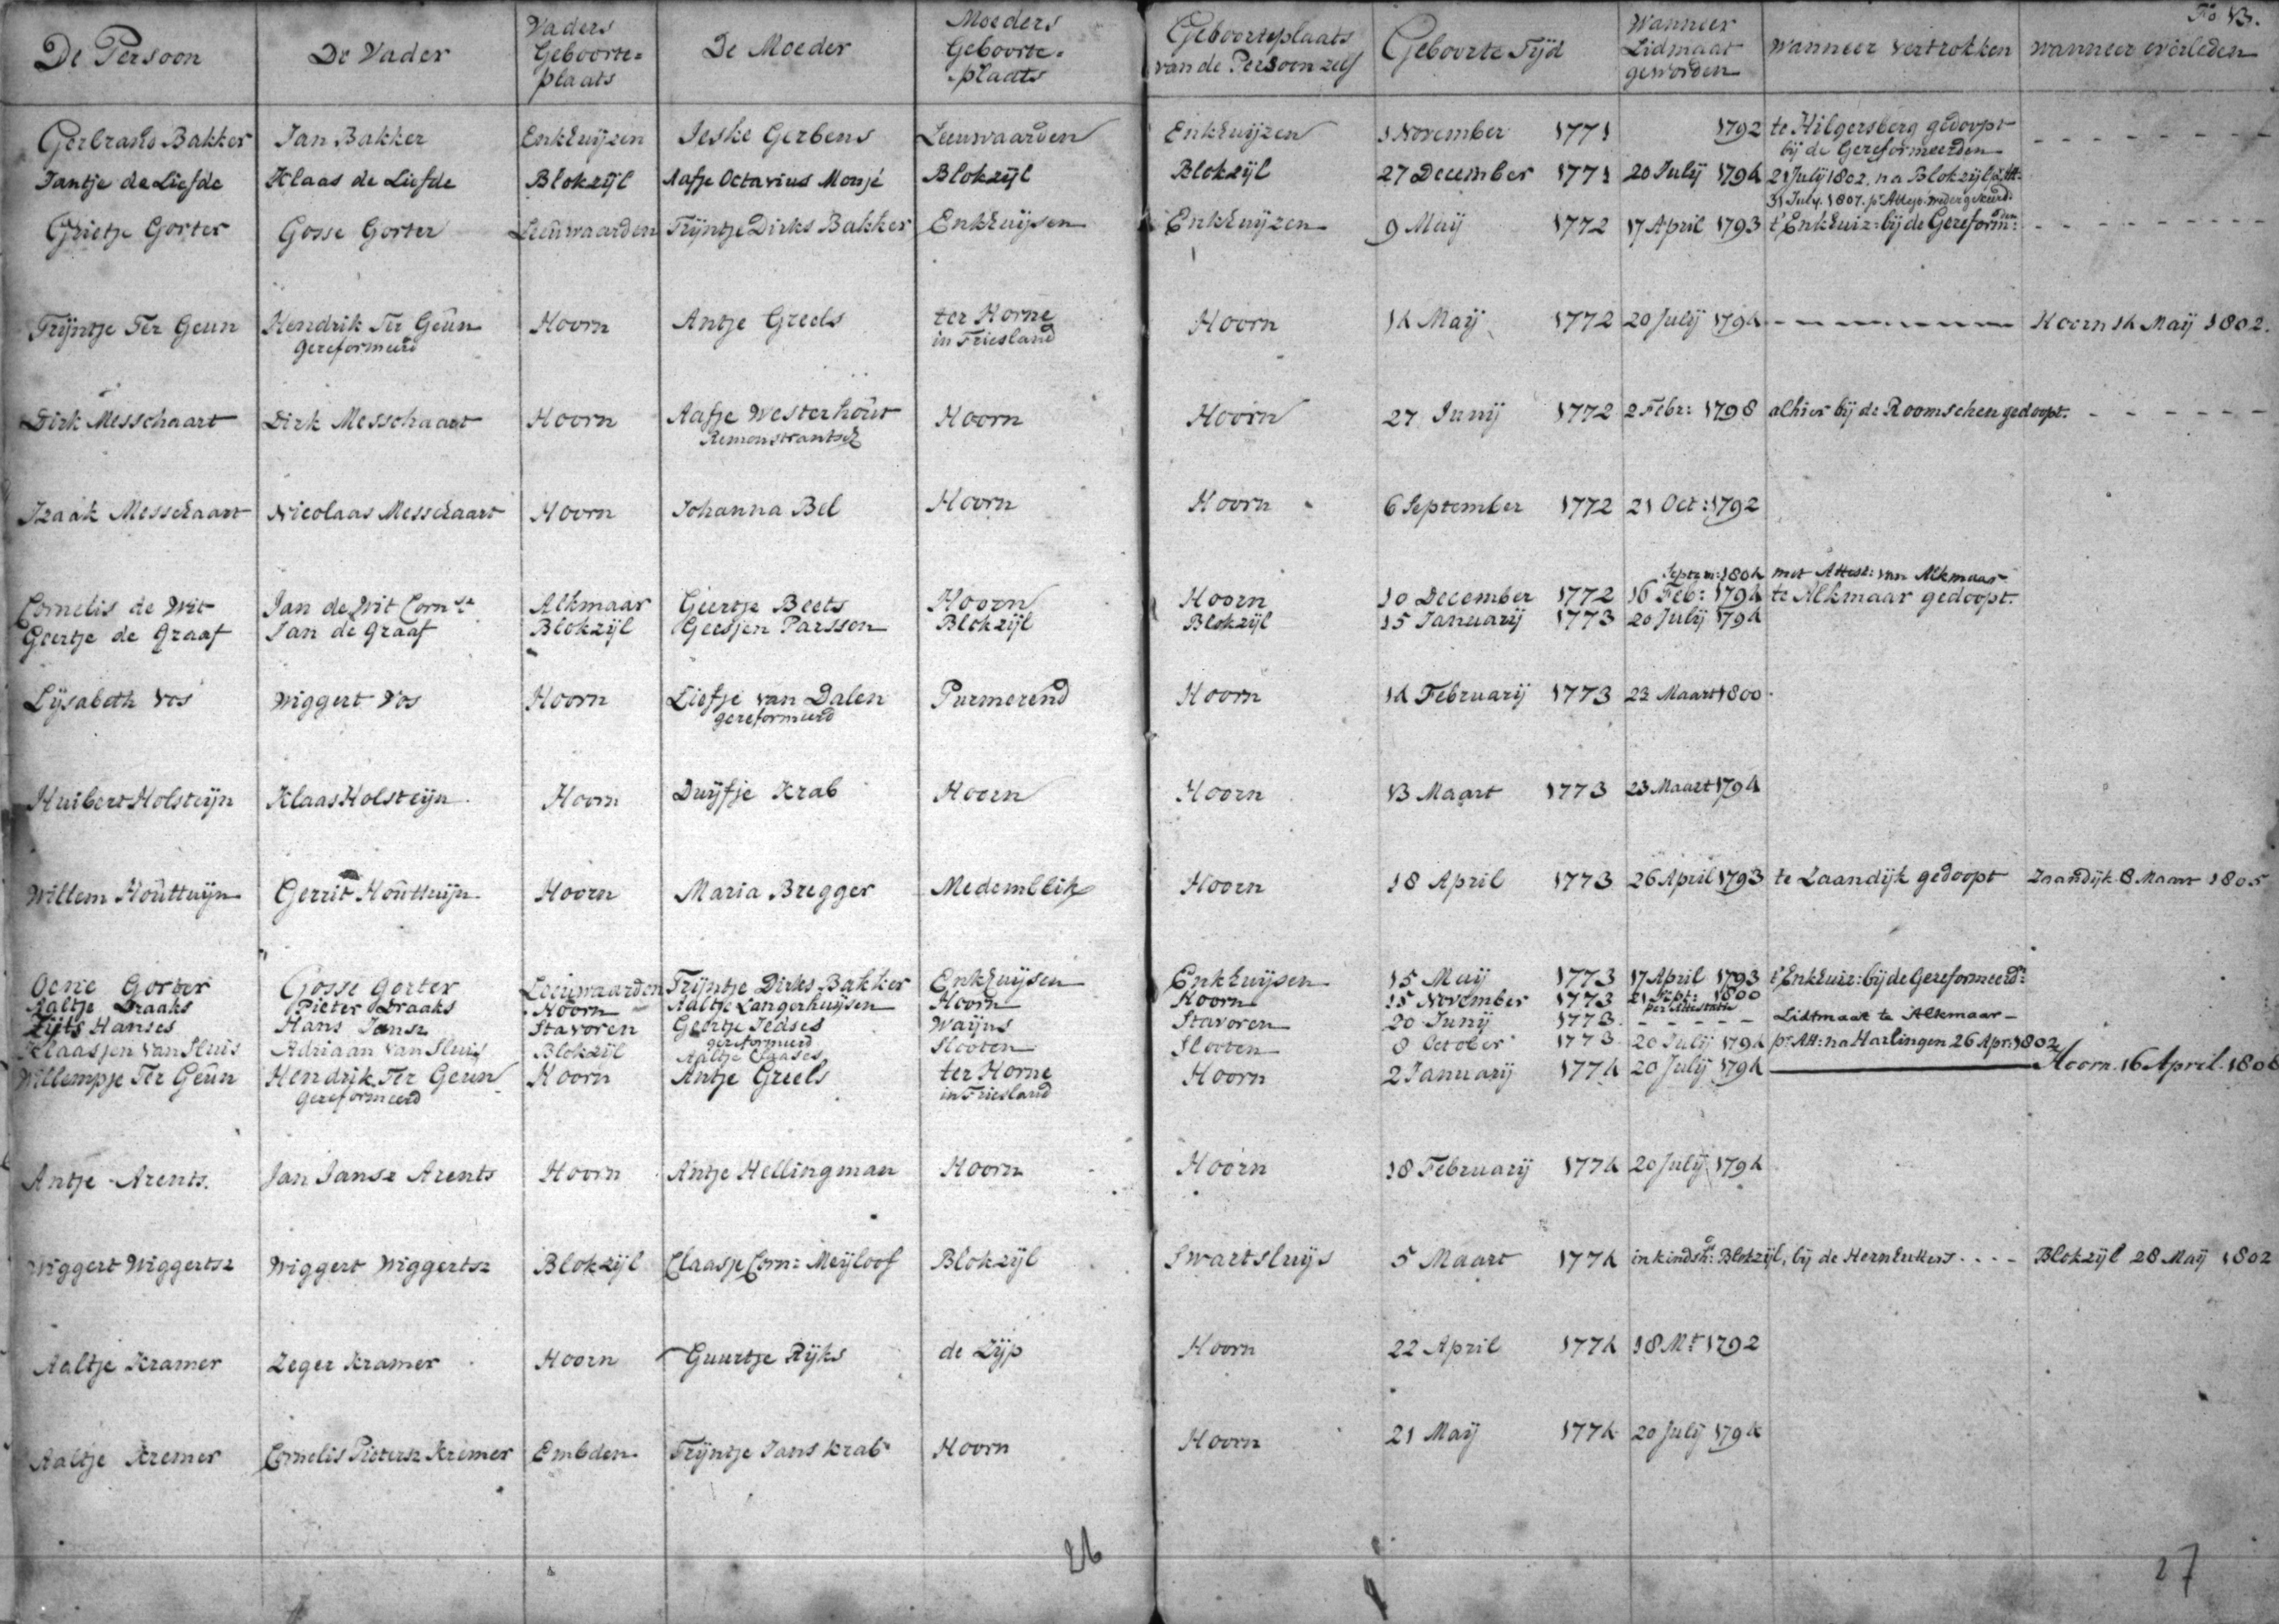 Fo 13.
De Persoon De Vader Vaders Geboorte= plaats De Moeder Moeders Geboorte= plaats Geboorteplaats van de Persoon zelf Geboorte Tijd Wanneer Lidmaat geworden Wanneer vertrokken wanneer overleden
Gerbrand Bakker Jan Bakker Enkhuijzen Jeske Gerbens Leeuwaarden Enkhuijzen 1 November 1771 1792 te Hilgersberg gedoopt - - - - - - - -
bij de Gereformeerden
Jantje de Liefde Klaas de Liefde Blokzijl Aafje Octavius Monjé Blokzijl Blokzijl 27 December 1771 20 Julij 1794 21 Julij 1802. na Blokzijl p. Att:
31 July. 1807. pr. Attest. weder gekeerd.
Grietje Gorter Gosse Gorter Leeuwaarden Trijntje Dirks Bakker Enkhuijsen Enkhuijzen 9 Maij 1772 17 April 1793 t' Enkhuiz: bij de Gereform:den - - - - - - - -
Trijntje Ter Geun Hendrik Ter Geun Hoorn Antje Greels ter Horne Hoorn 14 Maij 1772 20 Julij 1794 - - - - - - - - Hoorn 14 Maij 1802.
Gereformeerd in Friesland
Dirk Messchaart Dirk Messchaart Hoorn Aafje Westerhout Hoorn Hoorn 27 Junij 1772 2 Febr: 1798 alhier bij de Roomschen gedoopt. - - - - - -
Remonstrantsch
Izaak Messchaart Nicolaas Messchaart Hoorn Johanna Bel Hoorn Hoorn 6 September 1772 21 Oct: 1792
Septem: 1804 met Attest: van Alkmaar
Cornelis de Wit Jan de Wit Corn.sz Alkmaar Geertje Beets Hoorn Hoorn 10 December 1772 16 Feb: 1794 te Alkmaar gedoopt.
Geertje de Graaf Jan de Graaf Blokzijl Geesjen Parsson Blokzijl Blokzijl 15 Januarij 1773 20 Julij 1794
Lijsabeth Vos Wiggert Vos Hoorn Liefje van Dalen Purmerend Hoorn 14 Februarij 1773 23 Maart 1800.
gereformeerd
Huibert Holsteijn Klaas Holsteijn Hoorn Duijfje Krab Hoorn Hoorn 13 Maart 1773 23 Maart 1794
Willem Houttuijn Gerrit Houttuijn Hoorn Maria Bregger Medemblik Hoorn 18 April 1773 26 April 1793 te Zaandijk gedoopt Zaandijk 8 Maart 1805
Oene Gorter Gosse Gorter Leeuwaarden Trijntje Dirks Bakker Enkhuijsen Enkhuijsen 15 Maij 1773 17 April 1793 t' Enkhuiz: bij de Gereformeerd:
Aaltje Draaks Pieter Draaks Hoorn Aaltje Langerhuijsen Hoorn Hoorn 15 November 1773 21 Sept: 1800
per Attestatie
Zijts Hanses Hans Jansz Stavoren Geertje Jedses Waijns Stavoren 20 Junij 1773 - - - - - Lidtmaat te Alkmaar -
gereformeerd
Klaasjen van Sluis Adriaan van Sluis Blokzijl Aaltje Claases Slooten Slooten 8 October 1773 20 Julij 1794 pr. Att: na Harlingen 26 Apr: 1802
Willempje Ter Geun Hendrik Ter Geun Hoorn Antje Greels ter Horne Hoorn 2 Januarij 1774 20 Julij 1794 Hoorn. 16 April. 1806
Gereformeerd in Friesland
Antje Arents. Jan Jansz Arents Hoorn Antje Hellingman Hoorn Hoorn 18 Februarij 1774 20 Julij 1794
Wiggert Wiggertsz Wiggert Wiggertsz Blokzijl Claasje Corn: Meijloof Blokzijl Swartsluijs 5 Maart 1774 in kindsh: Blokzijl, bij de Hernhutters - - - - Blokzijl 28 Maij 1802
Aaltje Kramer Zeger Kramer Hoorn Guurtje Rijks de Zijp Hoorn 22 April 1774 18 Mt 1792
Aaltje Kremer Cornelis Pietersz Kremer Embden Trijntje Jans Krab Hoorn Hoorn 21 Maij 1774 20 Julij 1794
26 27